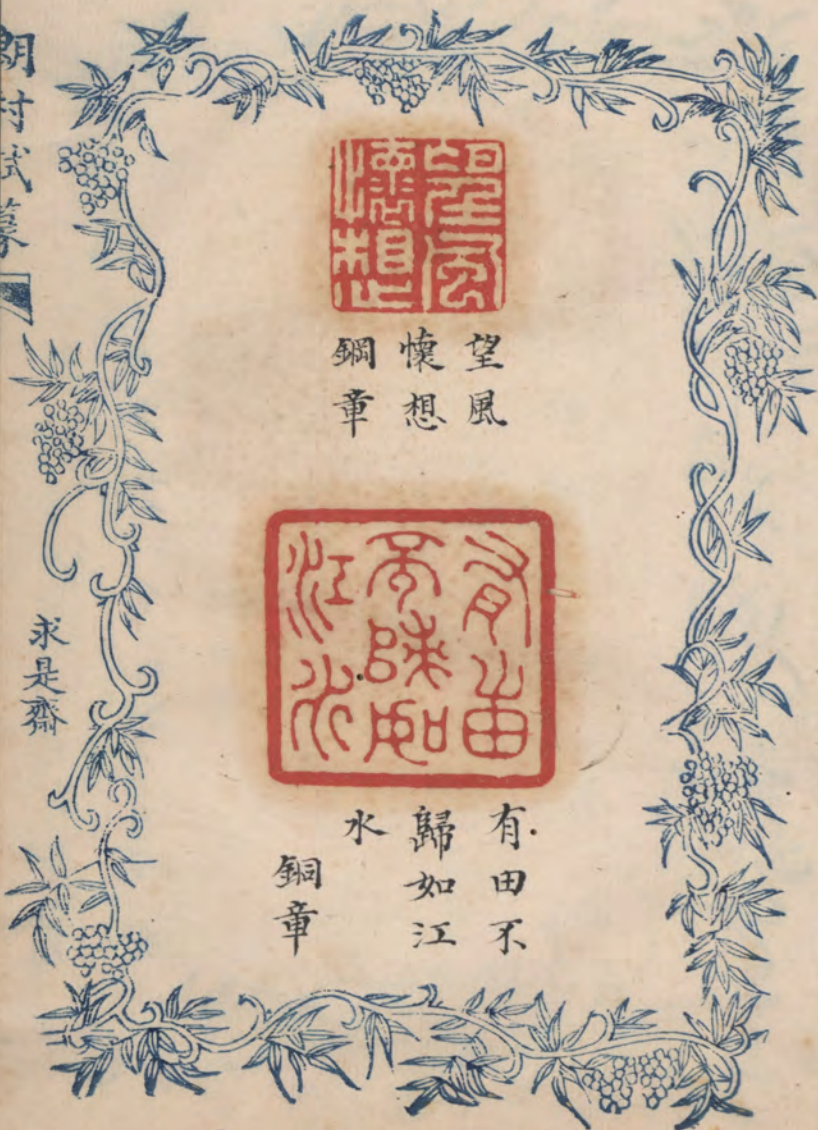 望風
懷想
望風
懷想
鋼章
有田
不歸如
江水
有田不
歸如江
水
銅章
村試篆
求是齋